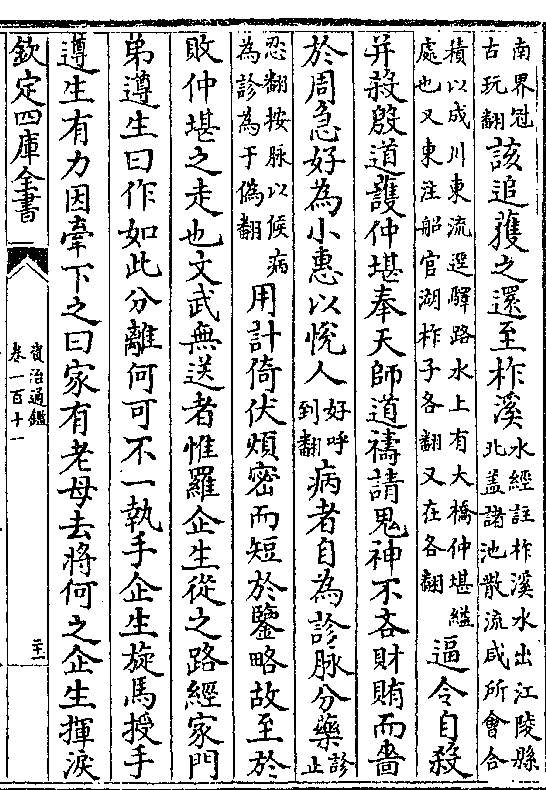 南界冠
古玩翻
該追獲之還至柞溪
水經註柞溪水出江陵縣
北蓋諸池散流咸所會合
積以成川東流逕驛路水上有大橋仲堪縊
處也又東注船官湖柞子各翻又在各翻
逼令自殺
并殺殷道護仲堪奉天師道禱請鬼神不吝財賄而嗇
於周急好為小惠以悅人
好呼
到翻
病者自為診脉分藥
診
止
忍翻按脉以候病
為診為于偽翻
用計倚伏煩密而短於鑒略故至於
敗仲堪之走也文武無送者惟羅企生從之路經家門
弟遵生曰作如此分離何可不一執手企生旋馬授手
遵生有力因牽下之曰家有老母去將何之企生揮淚
欽定四庫全書
資治通鑑
卷一百十一
二十一